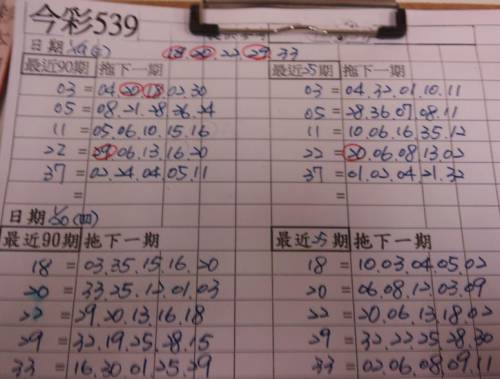 今彩539
日期 18.20.22.29.33
最近90期 拖下一期 最近25期 拖下一期
03 = 04.20.18.02.30 03 = 04.32.01.10.11
05 = 08.21.28.36.24 05 = 28.36.07.08.11
11 = 05.06.10.15.16 11 = 10.06.16.35.12
22 = 29.06.13.16.20 22 = 20.06.08.13.02
37 = 02.24.04.05.11 37 = 01.02.04.21.32
= =
日期 (四)
最近90期 拖下一期 最近25期 拖下一期
18 = 03.35.15.16.20 18 = 10.03.04.05.02
20 = 33.25.12.01.03 20 = 06.08.12.03.09
22 = 29.20.13.16.18 22 = 20.06.13.18.02
29 = 32.19.25.28.15 29 = 32.22.25.28.30
33 = 16.30.01.25.29 33 = 02.06.08.09.11